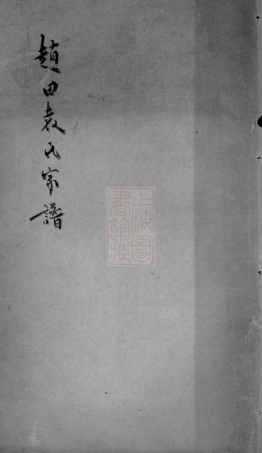 趙田袁氏宗譜
上海圖書館藏